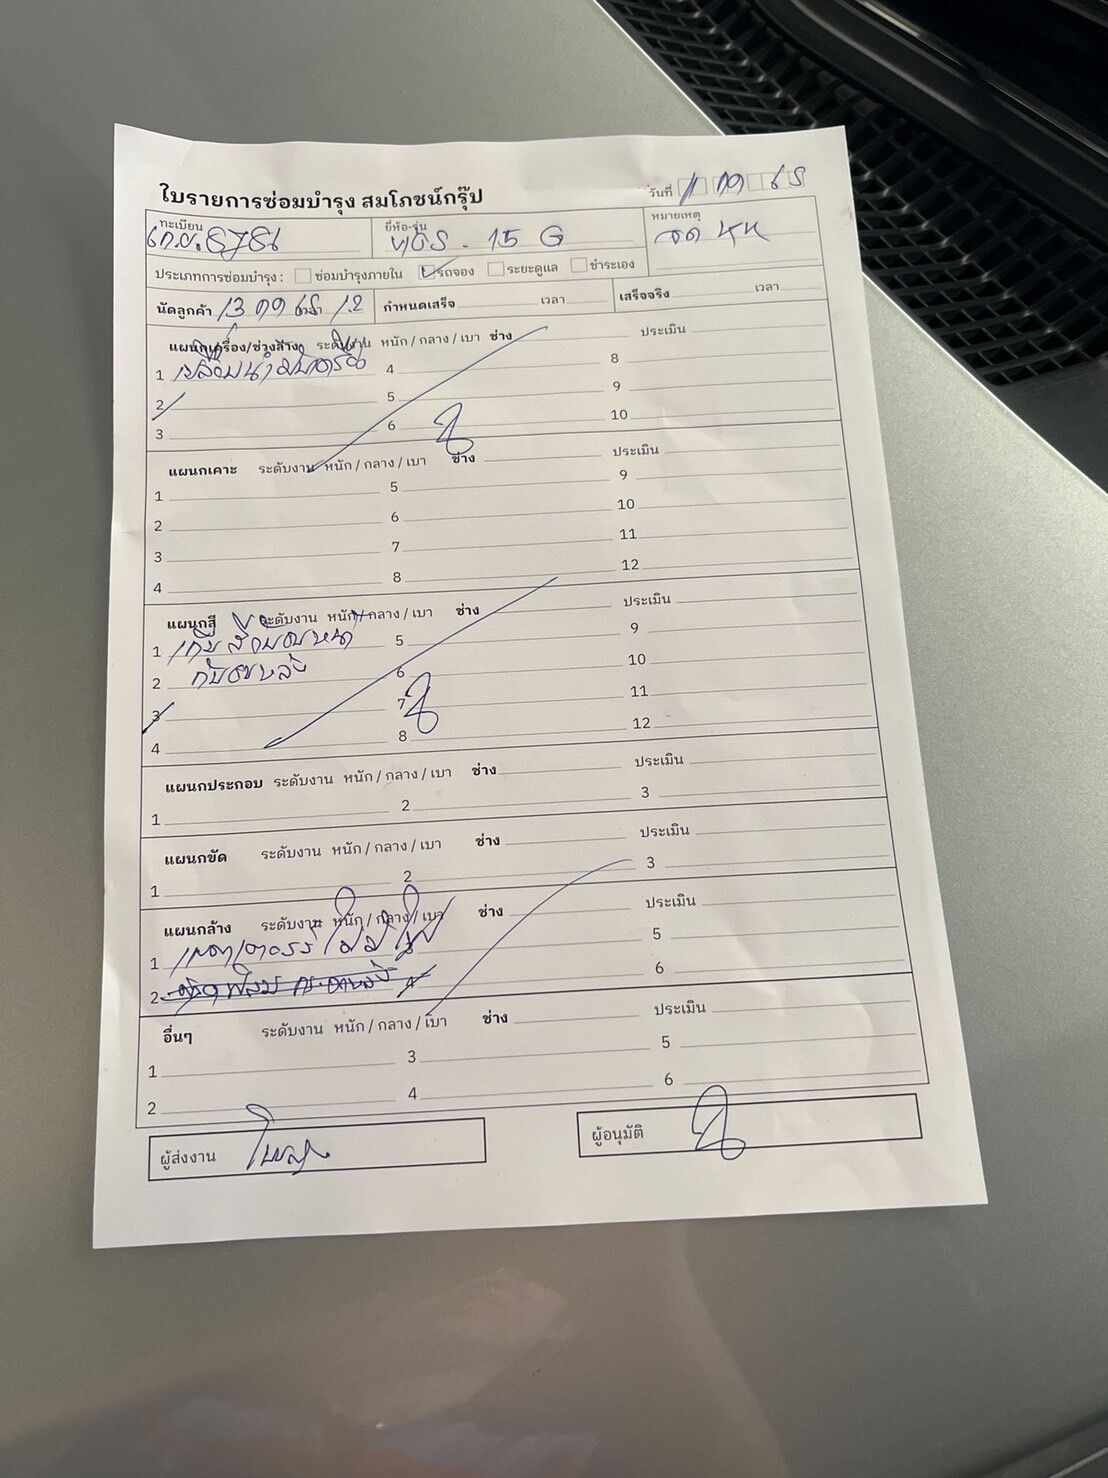 ใบรายการซ่อมบำรุง สมโภชน์กรุ๊ป
วันที่ 11 09 65
ทะเบียน 8786
ยี่ห้อ-รุ่น 15 G
หมายเหตุ จด
ประเภทการซ่อมบำรุง : ซ่อมบำรุงภายใน รถจอง ระยะดูแล ชำระเอง
นัดลูกค้า 13 09 65 กำหนดเสร็จ เวลา เสร็จจริง เวลา
แผนกเครื่อง/ช่วงล่าง ระดับงาน หนัก / กลาง / เบา ช่าง ประเมิน
1 เปลี่ยนน้ำมันเครื่อง 4 8
2 5 9
3 6 10
แผนกเคาะ ระดับงาน หนัก / กลาง / เบา ช่าง ประเมิน
1 5 9
2 6 10
3 7 11
4 8 12
แผนกสี ระดับงาน หนัก / กลาง / เบา ช่าง ประเมิน
1 เก็บสี 5 9
2 6 10
3 7 11
4 8 12
แผนกประกอบ ระดับงาน หนัก / กลาง / เบา ช่าง ประเมิน
1 2 3
แผนกขัด ระดับงาน หนัก / กลาง / เบา ช่าง ประเมิน
1 2 3
แผนกล้าง ระดับงาน หนัก / กลาง / เบา ช่าง ประเมิน
1 3 5
2 4 6
อื่นๆ ระดับงาน หนัก / กลาง / เบา ช่าง ประเมิน
1 3 5
2 4 6
ผู้ส่งงาน ผู้อนุมัติ